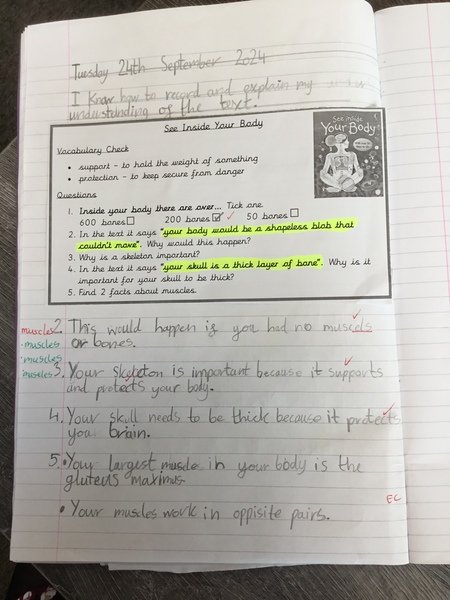 Tuesday 24th September 2024
I know how to record and explain my
understanding of the text.
See Inside Your Body
Vocabulary Check
• support - to hold the weight of something
• protection - to keep secure from danger
See inside
Your Body
Questions
1. Inside your body there are over... Tick one.
600 bones☐ 200 bones☑ ✓ 50 bones☐
2. In the text it says "your body would be a shapeless blob that
couldn't move". Why would this happen?
3. Why is a skeleton important?
4. In the text it says "your skull is a thick layer of bone". Why is it
important for your skull to be thick?
5. Find 2 facts about muscles.
muscles
• muscles
• muscles
muscles
2. This would happen if you had no muscels
or bones.
3. Your skeleton is important because it supports
and protects your body.
4. Your skull needs to be thick because it protects
your brain.
5. • Your largest muscle in your body is the
gluteus maximus.
EC
• Your muscles work in oppisite pairs.